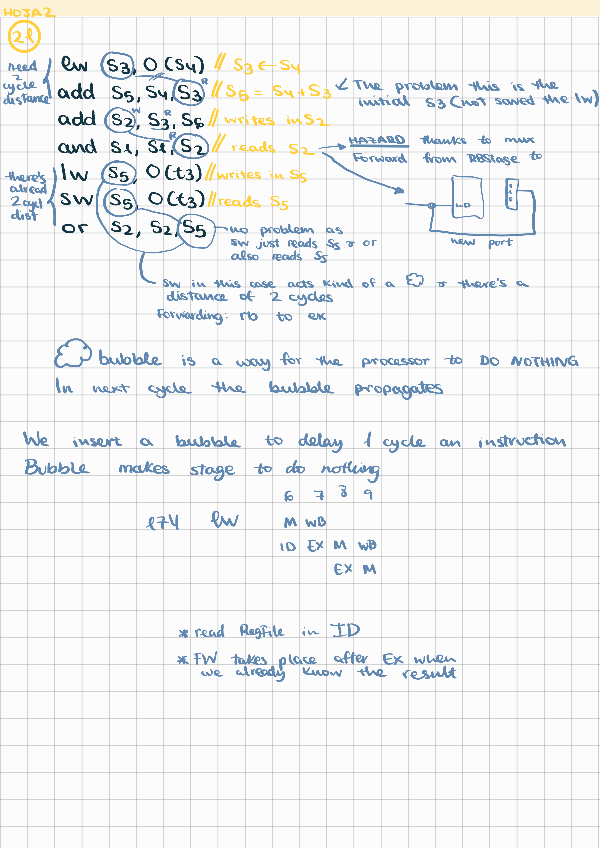 HOJA2
2l
need 2 cycle distance
lw S3, 0(S4) // S3 ← S4
add S5, S4, S3 R // S5 = S4 + S3 ↙ The problem this is the
initial S3 (not saved the lw)
add S2 W, S3 R, S5 // writes in S2
and S1, S1, S2 R // reads S2 → HAZARD thanks to mux
Forward from RBStage to
there's alread 2 cycl dist
lw S5, 0(t3) // writes in S5
sw S5, 0(t3) // reads S5
or S2, S2, S5 no problem as
sw just reads S5 & or
also reads S5
new port
sw in this case acts kind of a & there's a
distance of 2 cycles
Forwarding: rb to ex
bubble is a way for the processor to DO NOTHING
In next cycle the bubble propagates
We insert a bubble to delay 1 cycle an instruction
Bubble makes stage to do nothing
6 7 8 9
174 lw M WB
ID EX M WB
EX M
* read RegFile in ID
* FW takes place after EX when
we already know the result